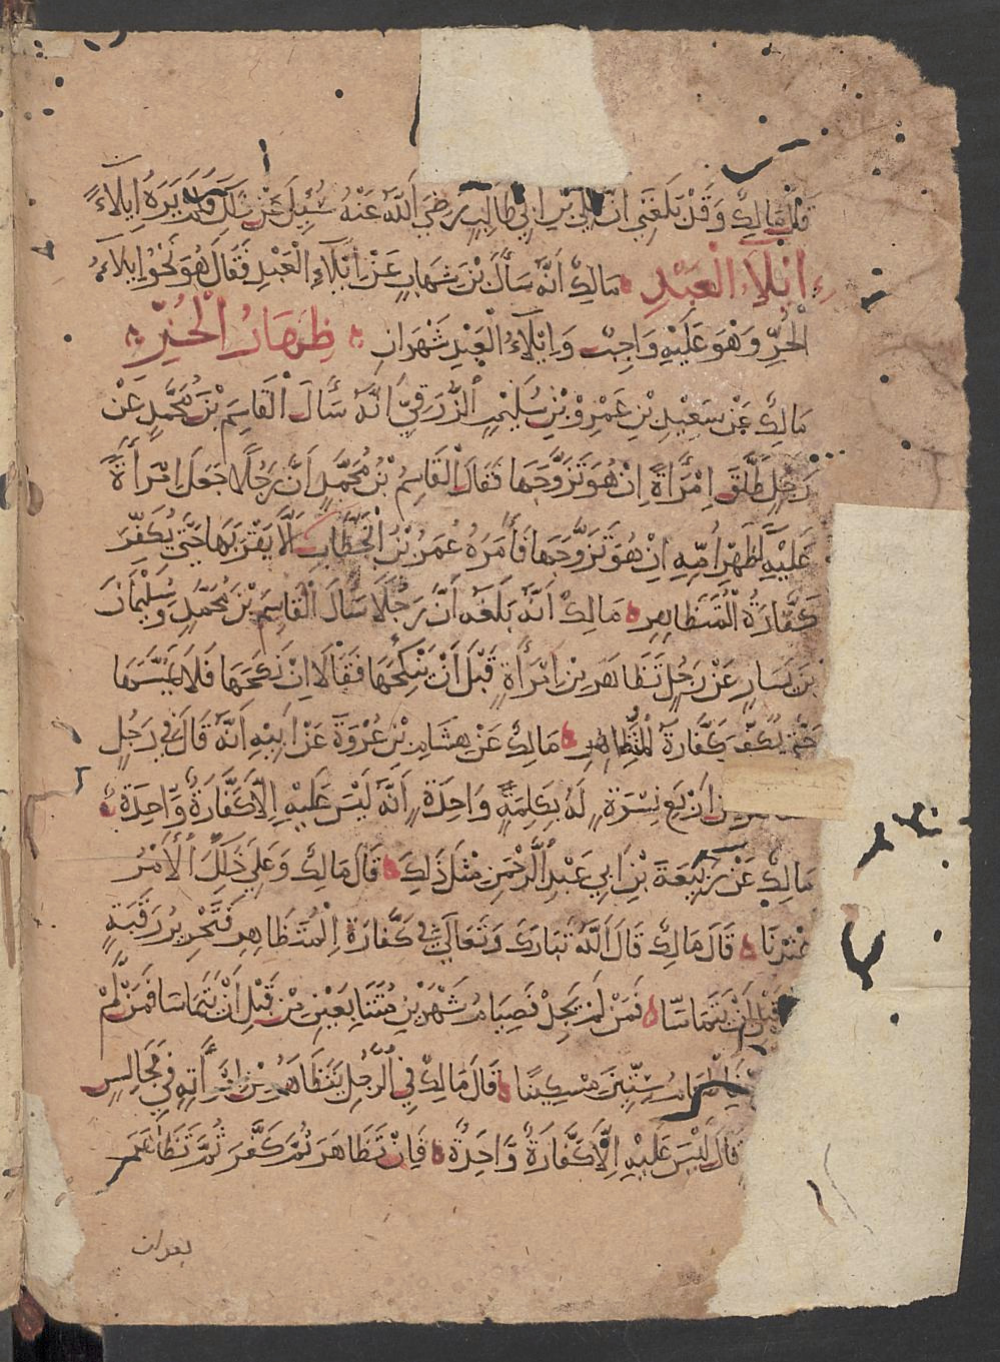 قال مالك وقد بلغني ان علي بن ابي طالب رضي الله عنه سئل عن ذلك فلم يره إيلاء
ايلاء العبد مالك انه سأل بن شهاب عن ايلاء العبد فقال هو نحو إيلاء
الحر وهو عليه واجب وايلاء العبد شهران ظهار الحر
مالك عن سعيد بن عمرو بن سليم الزرقي انه سأل القاسم بن محمد عن
رجل طلق امرأة ان هو تزوجها فقال القاسم بن محمد ان رجلا جعل امرأة
عليه كظهر أمه ان هو تزوجها فأمره عمر بن الخطاب ألا يقربها حتى يكفر
كفارة المتظاهر مالك انه بلغه أن رجلا سأل القاسم بن محمد وسليمان
بن يسار عن رجل تظاهر من امرأة قبل أن ينكحها فقالا ان نكحها فلا يمسها
حتى يكفر كفارة المتظاهر مالك عن هشام بن عروة عن ابيه انه قال في رجل
من اربع نسوة له بكلمة واحدة أنه ليس عليه إلا كفارة واحدة
مالك عن ربيعة بن ابي عبد الرحمن مثل ذلك قال مالك وعلى ذلك الأمر
عندنا قال مالك قال الله تبارك وتعالى في كفارة المتظاهر فتحرير رقبة
قبل أن يتماسا فمن لم يجد فصيام شهرين متتابعين من قبل أن يتماسا فمن لم
فإطعام ستين مسكينا قال مالك في الرجل يتظاهر من امرأته في مجالس
قال ليس عليه إلا كفارة واحدة فإن تظاهر ثم كفر ثم تظاهر
بعد ان